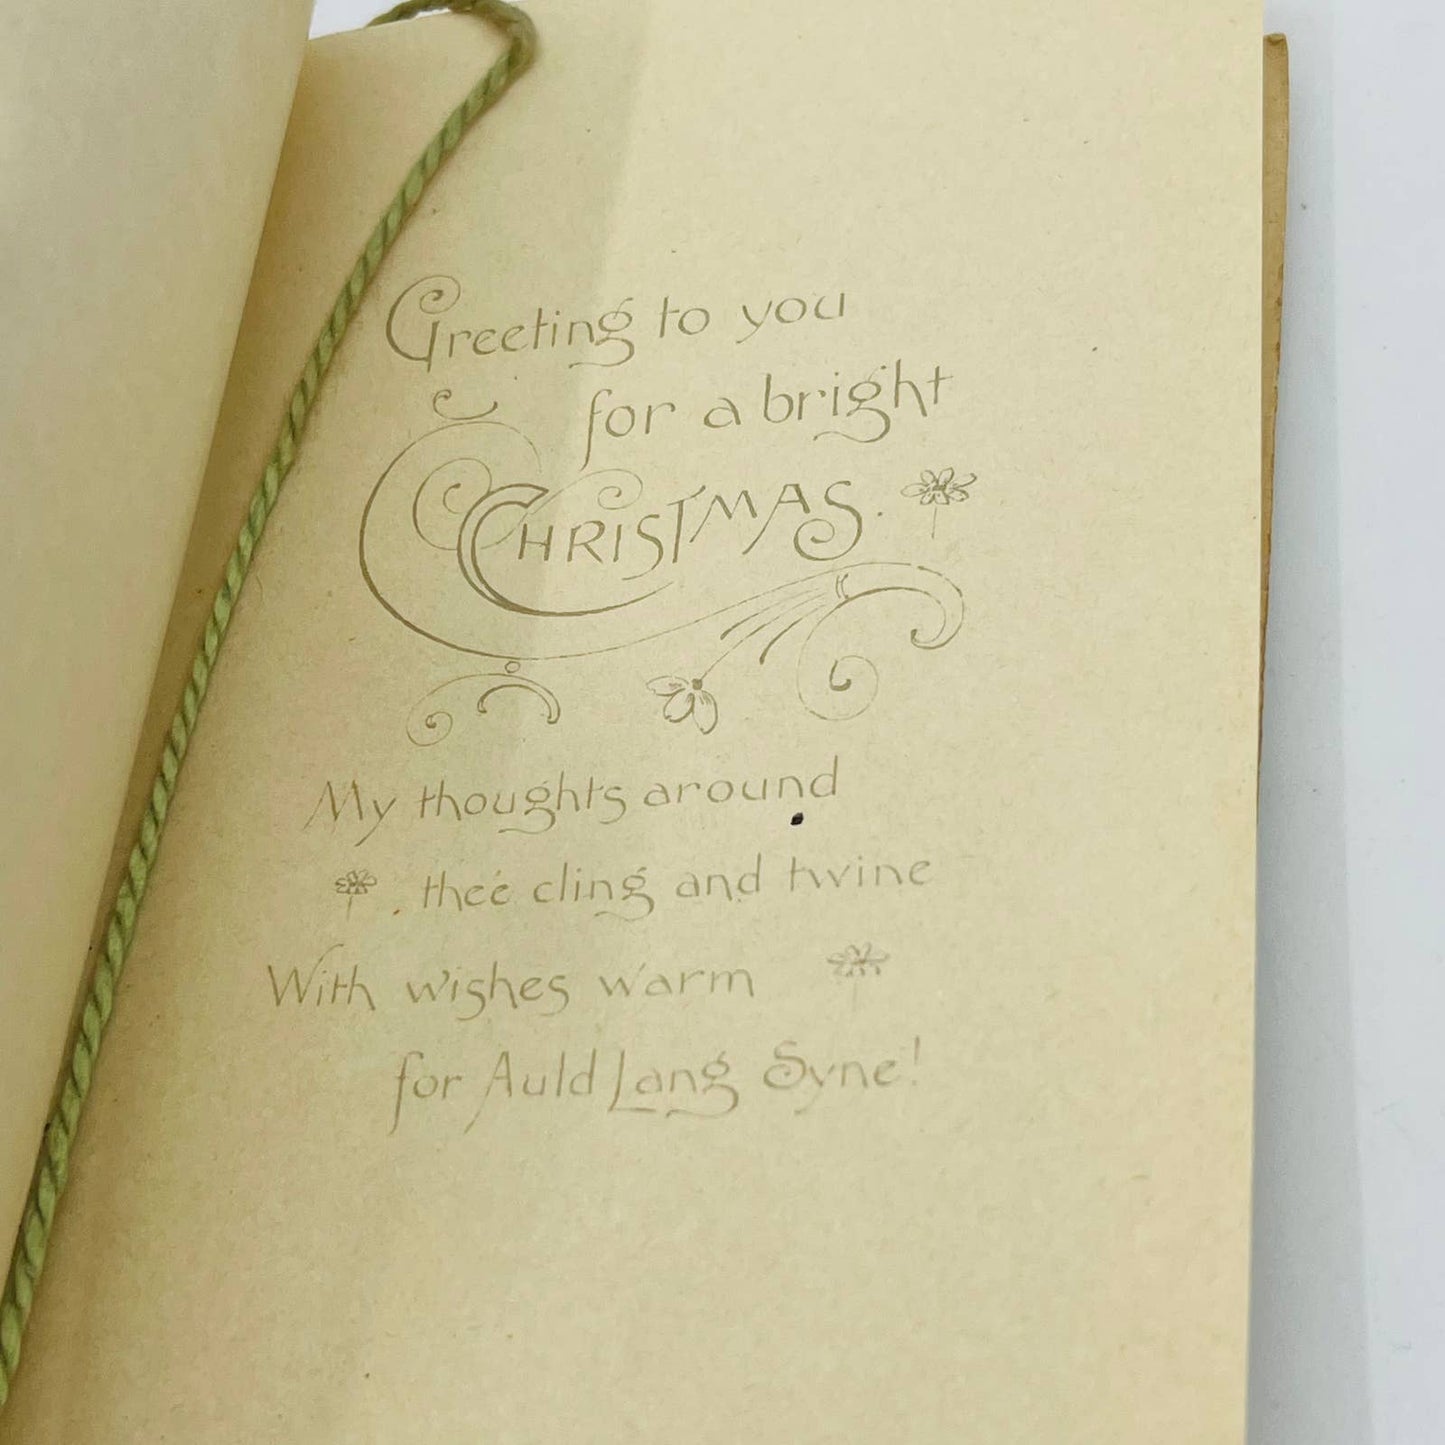 Greeting to you
for a bright
CHRISTMAS.
My thoughts around
thee cling and twine
With wishes warm
for Auld Lang Syne!